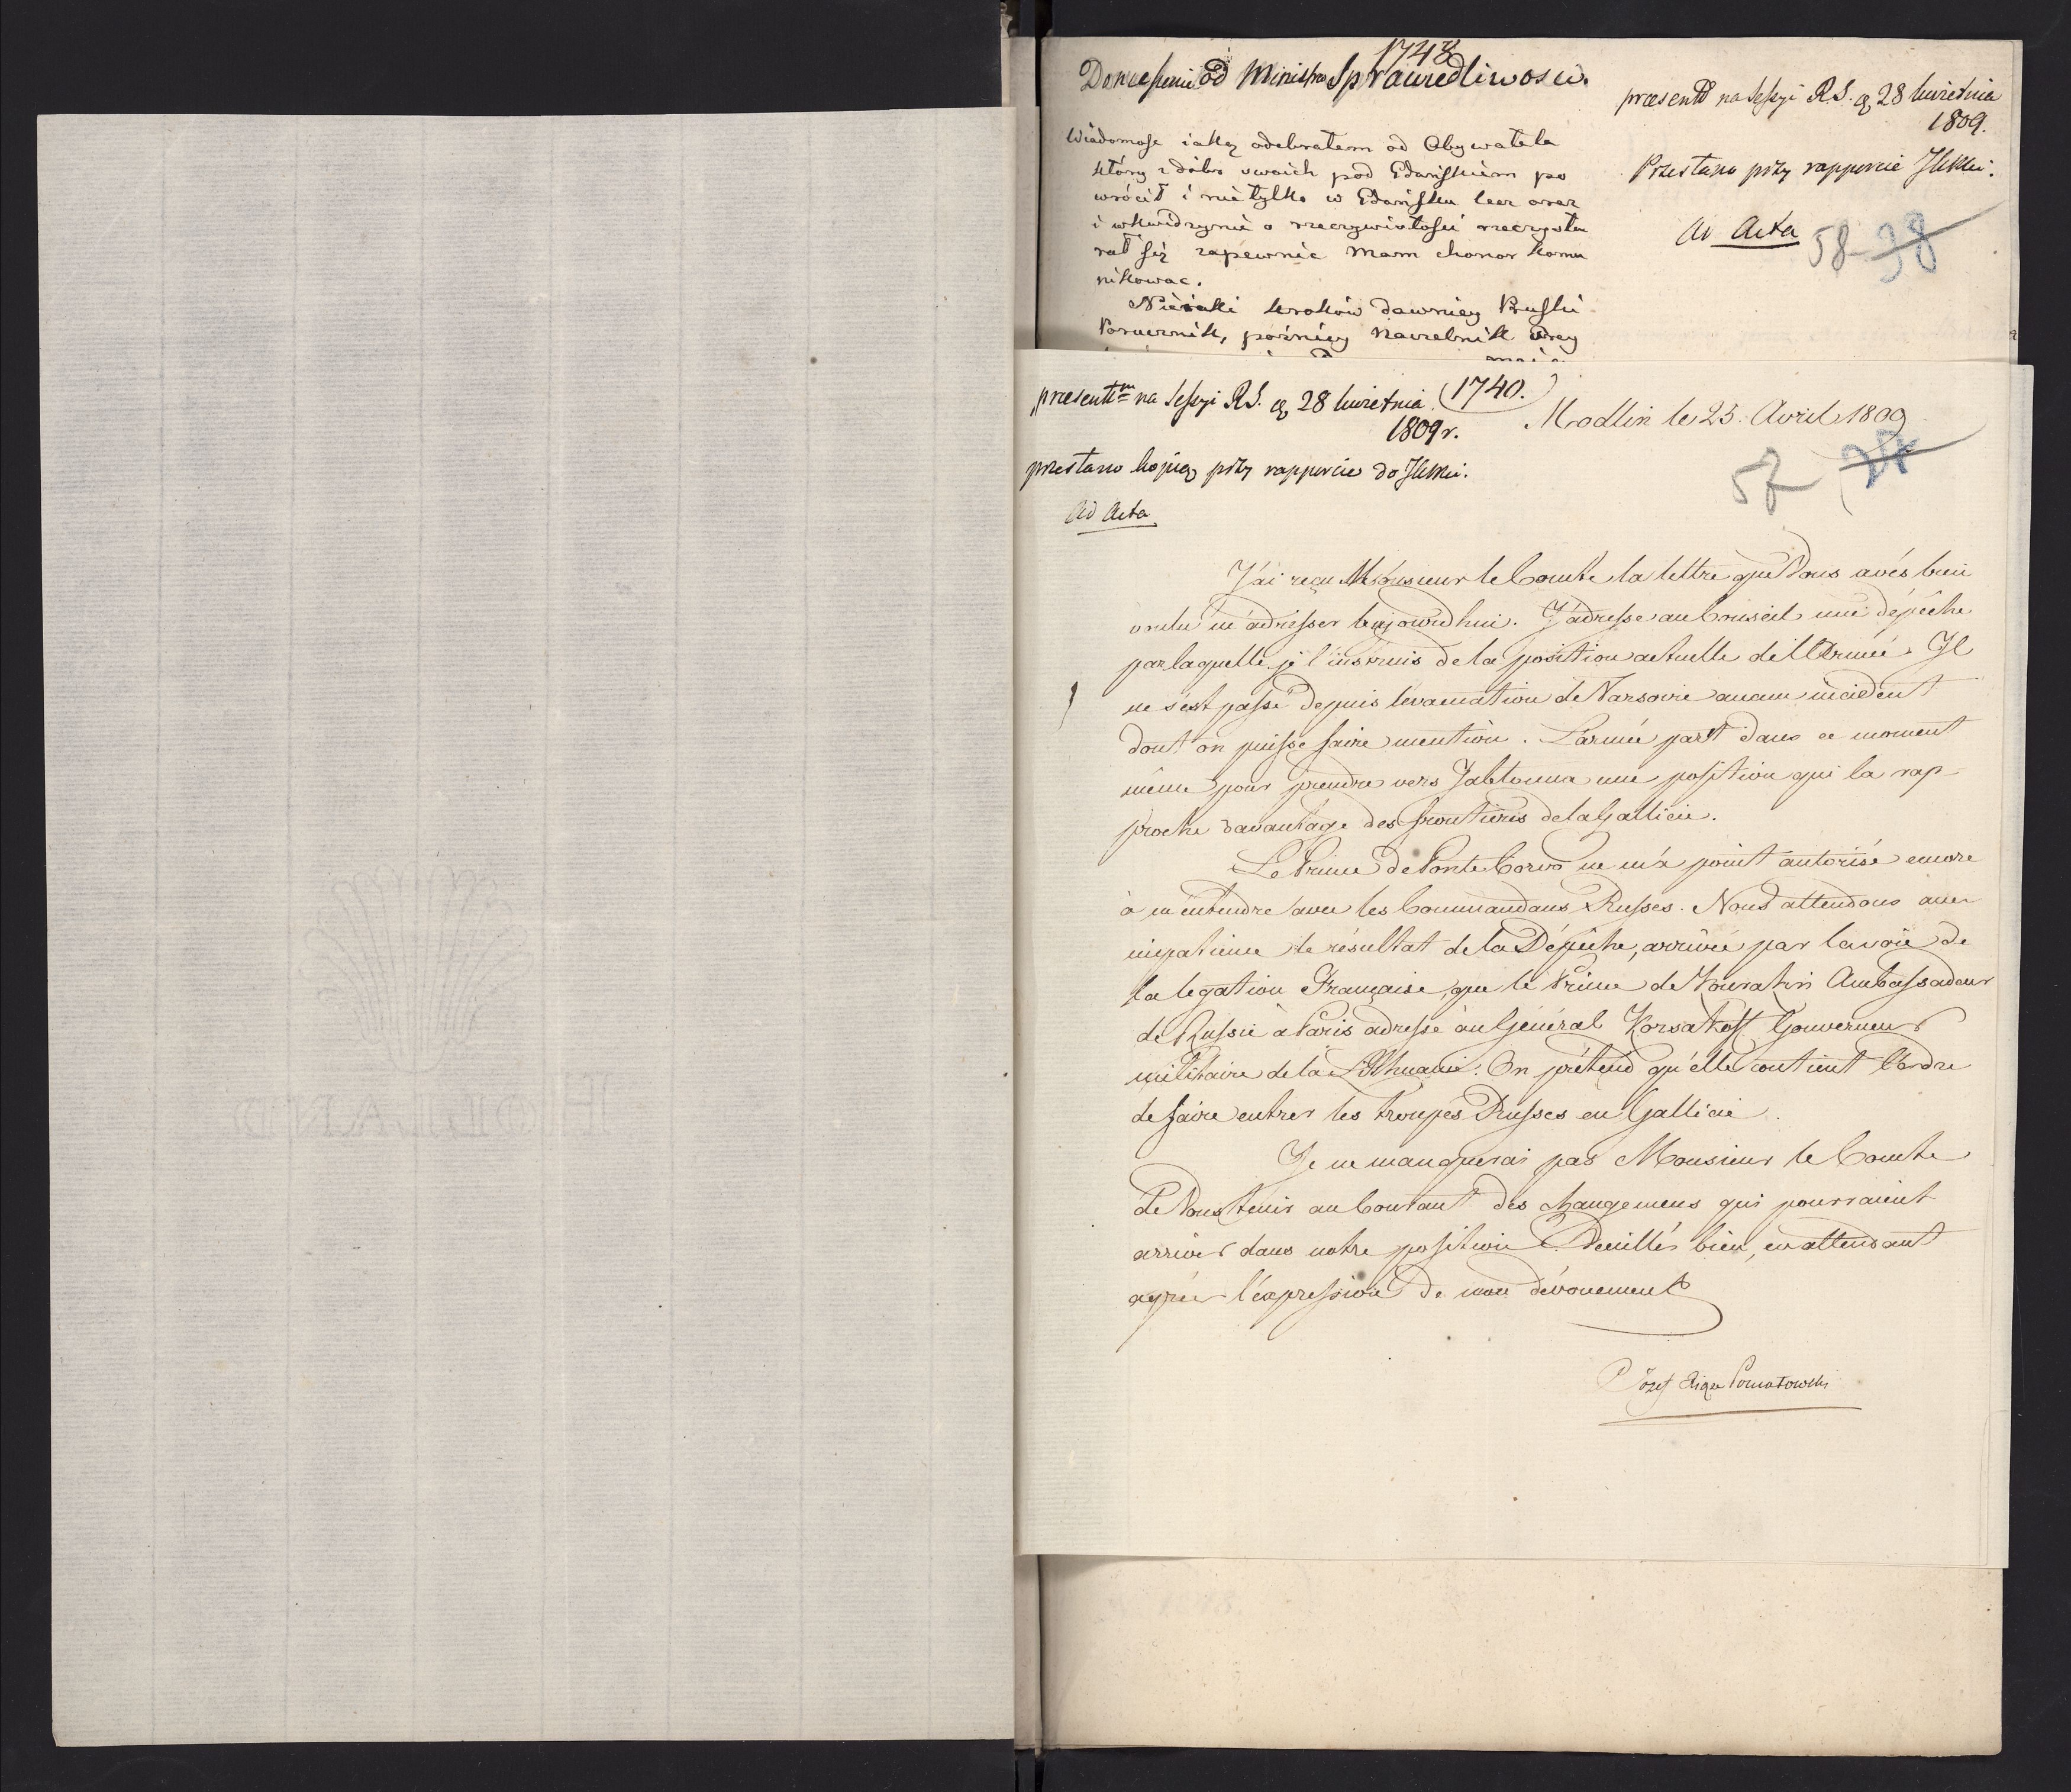 1748
Doniesienie od Ministra Sprawiedliwosci.
præsentt na Sessyi R.S. d. 28 kwietnia
1809.
Przesłano przy rapporcie JKMci.
Ad Acta
58 38
Wiadomosc iaką odebratem od Obywatela
który z dóbr swoich pod Gdańskiem po
wrócił i nie tylko w Gdańsku lecz oraz
i w Kwidzynie o rzeczywistości rzeczy sta
rał się zapewnic mam honor komu
nikowac.
Nieiaki Kroków dawniey Pruski
Porucznik, pózniey Naczelnik
præsenttm na Sessyi R.S. d. 28 kwietnia
1809 r.
1740.
Modlin le 25. Avril 1809
przesłano kopią przy rapporcie do JKMci.
57
Ad Acta
J'ai reçu Monsieur le Comte la lettre que Vous avés bien
voulu m'adresser aujourd'hui. J'adresse au Conseil une dépêche
par laquelle je l'instruis de la position actuelle de l'Armée. Il
ne s'est passé depuis l'evacuation de Varsovie aucun incident
dont on puisse faire mention. L'armée part dans ce moment
même pour prendre vers Jabłonna une position qui la rap-
proche davantage des frontieres de la Gallicie.
Le Prince de Ponte Corvo ne m'a point autorisé encore
à m'entendre avec les Commandans Russes. Nous attendons avec
impatience le résultat de la Dépêche, arrivée par la voie de
la legation Française, que le Prince de Kourakin Ambassadeur
de Russie à Paris adresse au Général Korsakoff Gouverneur
militaire de la Lithuanie. On prétend qu'elle contient l'ordre
de faire entrer les troupes Russes en Gallicie.
Je ne manquerai pas Monsieur le Comte
de Vous tenir au Courant des changemens qui pourraient
arriver dans notre position. Veuillés bien, en attendant
agréer l'expression de mon dévouement
Józef Xiąże Poniatowski
HOLLAND